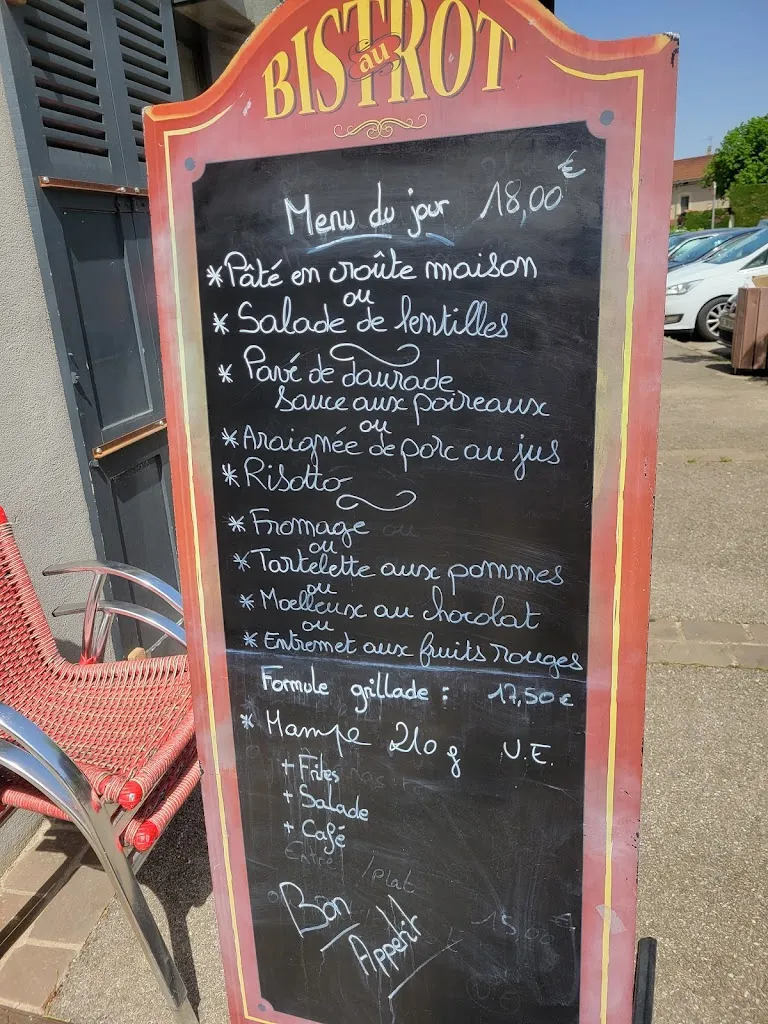 BISTROT
au
Menu du jour 18,00€
* Pâté en croûte maison
ou
* Salade de lentilles
* Pavé de daurade
sauce aux poireaux
ou
* Araignée de porc au jus
* Risotto
* Fromage ou
ou
* Tartelette aux pommes
ou
* Moelleux au chocolat
ou
* Entremet aux fruits rouges
Formule grillade : 17,50 €
* Hampe 210 g U.E.
+ Frites
+ Salade
+ Café
Entrée
/plat
Bon
Appétit
15,00 €